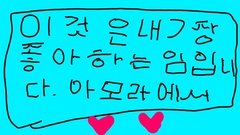 이것은내가장
좋아하는임입니
다. 아모라에서